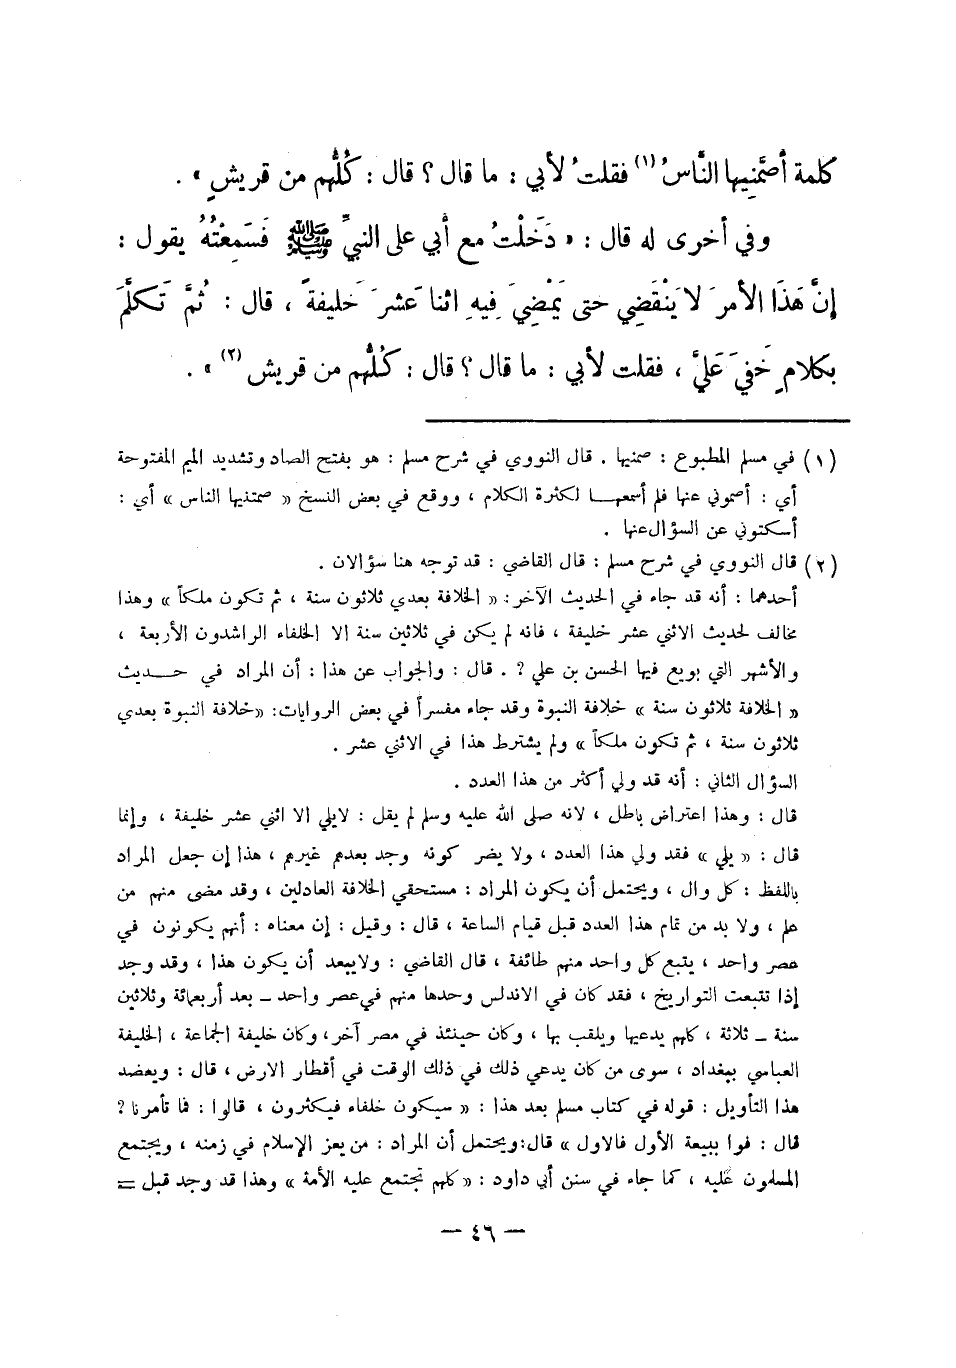 كلمة أصَمَّنِيها النَّاسُ (١) فقلتُ لأبي : ما قال ؟ قال : كُلُّهم من قريشٍ » .
وفي أخرى له قال : « دَخَلْتُ مع أبي على النبيِّ ﷺ فَسَمِعْتُهُ يقول :
إنَّ هَذَا الأمرَ لا يَنْقَضِي حتى يَمْضِيَ فِيهِ اثنا عَشرَ خَليفةً ، قال : ثُمَّ تَكلَّمَ
بكلامٍ خَفيَ عَليَّ ، فقلت لأبي : ما قال ؟ قال : كُلُّهم من قريش (٢) » .
(١) في مسلم المطبوع : صمنيها . قال النووي في شرح مسلم : هو بفتح الصاد وتشديد الميم المفتوحة
أي : أصموني عنها فلم أسمعها لكثرة الكلام ، ووقع في بعض النسخ « صمتنيها الناس » أي :
أسكتوني عن السؤال عنها .
(٢) قال النووي في شرح مسلم : قال القاضي : قد توجه هنا سؤالان .
أحدهما : أنه قد جاء في الحديث الآخر : « الخلافة بعدي ثلاثون سنة ، ثم تكون ملكاً » وهذا
مخالف لحديث الاثني عشر خليفة ، فانه لم يكن في ثلاثين سنة الا الخلفاء الراشدون الأربعة ،
والأشهر التي بويع فيها الحسن بن علي ? . قال : والجواب عن هذا : أن المراد في حديث
« الخلافة ثلاثون سنة » خلافة النبوة وقد جاء مفسراً في بعض الروايات : «خلافة النبوة بعدي
ثلاثون سنة ، ثم تكون ملكاً » ولم يشترط هذا في الاثني عشر .
السؤال الثاني : أنه قد ولي أكثر من هذا العدد .
قال : وهذا اعتراض باطل ، لانه صلى الله عليه وسلم لم يقل : لايلي الا اثني عشر خليفة ، وإنما
قال : « يلي » فقد ولي هذا العدد ، ولا يضر كونه وجد بعدهم غيرهم ، هذا إن جعل المراد
باللفظ : كل وال ، ويحتمل أن يكون المراد : مستحقي الخلافة العادلين ، وقد مضى منهم من
علم ، ولا بد من تمام هذا العدد قبل قيام الساعة ، قال : وقيل : إن معناه : أنهم يكونون في
عصر واحد ، يتبع كل واحد منهم طائفة ، قال القاضي : ولايبعد أن يكون هذا ، وقد وجد
إذا تتبعت التواريخ ، فقد كان في الاندلس وحدها منهم في عصر واحد – بعد أربعمائة وثلاثين
سنة – ثلاثة ، كلهم يدعيها ويلقب بها ، وكان حينئذ في مصر آخر ، وكان خليفة الجماعة ، الخليفة
العباسي ببغداد ، سوى من كان يدعي ذلك في ذلك الوقت في أقطار الارض ، قال : ويعضد
هذا التأويل : قوله في كتاب مسلم بعد هذا : « سيكون خلفاء فيكثرون ، قالوا : فما تأمرنا ?
قال : فوا ببيعة الأول فالاول » قال: ويحتمل أن المراد : من يعز الإسلام في زمنه ، ويجتمع
المسلمون عليه ، كما جاء في سنن أبي داود : « كلهم تجتمع عليه الأمة » وهذا قد وجد قبل =
– ٤٦ –